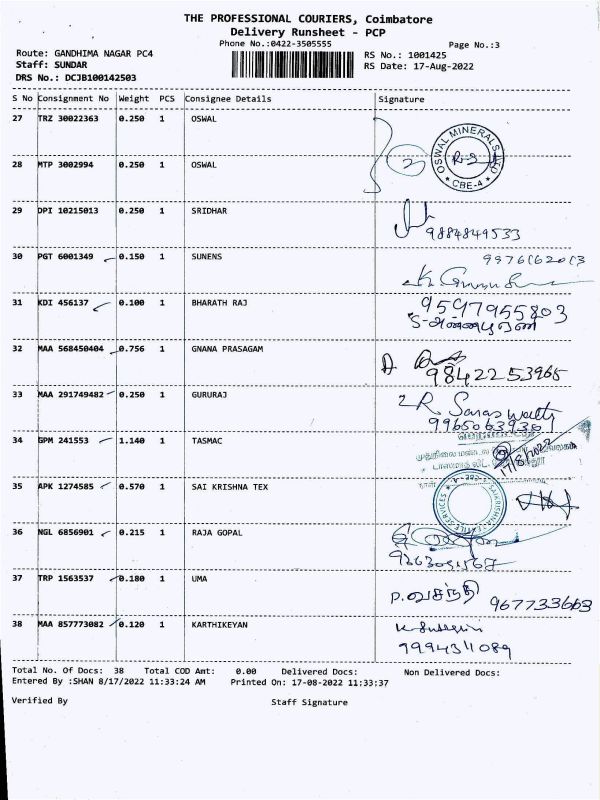 THE PROFESSIONAL COURIERS, Coimbatore
Delivery Runsheet - PCP
Phone No.:0422-3505555
Page No.:3
Route: GANDHIMA NAGAR PC4
Staff: SUNDAR
DRS No.: DCJB100142503
RS No.: 1001425
RS Date: 17-Aug-2022
S No Consignment No Weight PCS Consignee Details Signature
27 TRZ 30022363 0.250 1 OSWAL
28 MTP 3002994 0.250 1 OSWAL
2
OSWAL MINERALS
CBE-4
29 DPI 10215013 0.250 1 SRIDHAR
9884849533
30 PGT 6001349 0.150 1 SUNENS
9976162013
31 KDI 456137 0.100 1 BHARATH RAJ
9597955803
S-அன்னபூரணி
32 MAA 568450404 0.756 1 GNANA PRASAGAM
9842253965
33 MAA 291749482 0.250 1 GURURAJ
R Saraswathy
34 GPM 241553 1.140 1 TASMAC
17/8/2022
35 APK 1274585 0.570 1 SAI KRISHNA TEX
36 NGL 6856901 0.215 1 RAJA GOPAL
37 TRP 1563537 0.180 1 UMA
P.வசந்தி 967733663
38 MAA 857773082 0.120 1 KARTHIKEYAN
9994311089
Total No. Of Docs: 38 Total COD Amt: 0.00 Delivered Docs: Non Delivered Docs:
Entered By :SHAN 8/17/2022 11:33:24 AM Printed On: 17-08-2022 11:33:37
Verified By Staff Signature